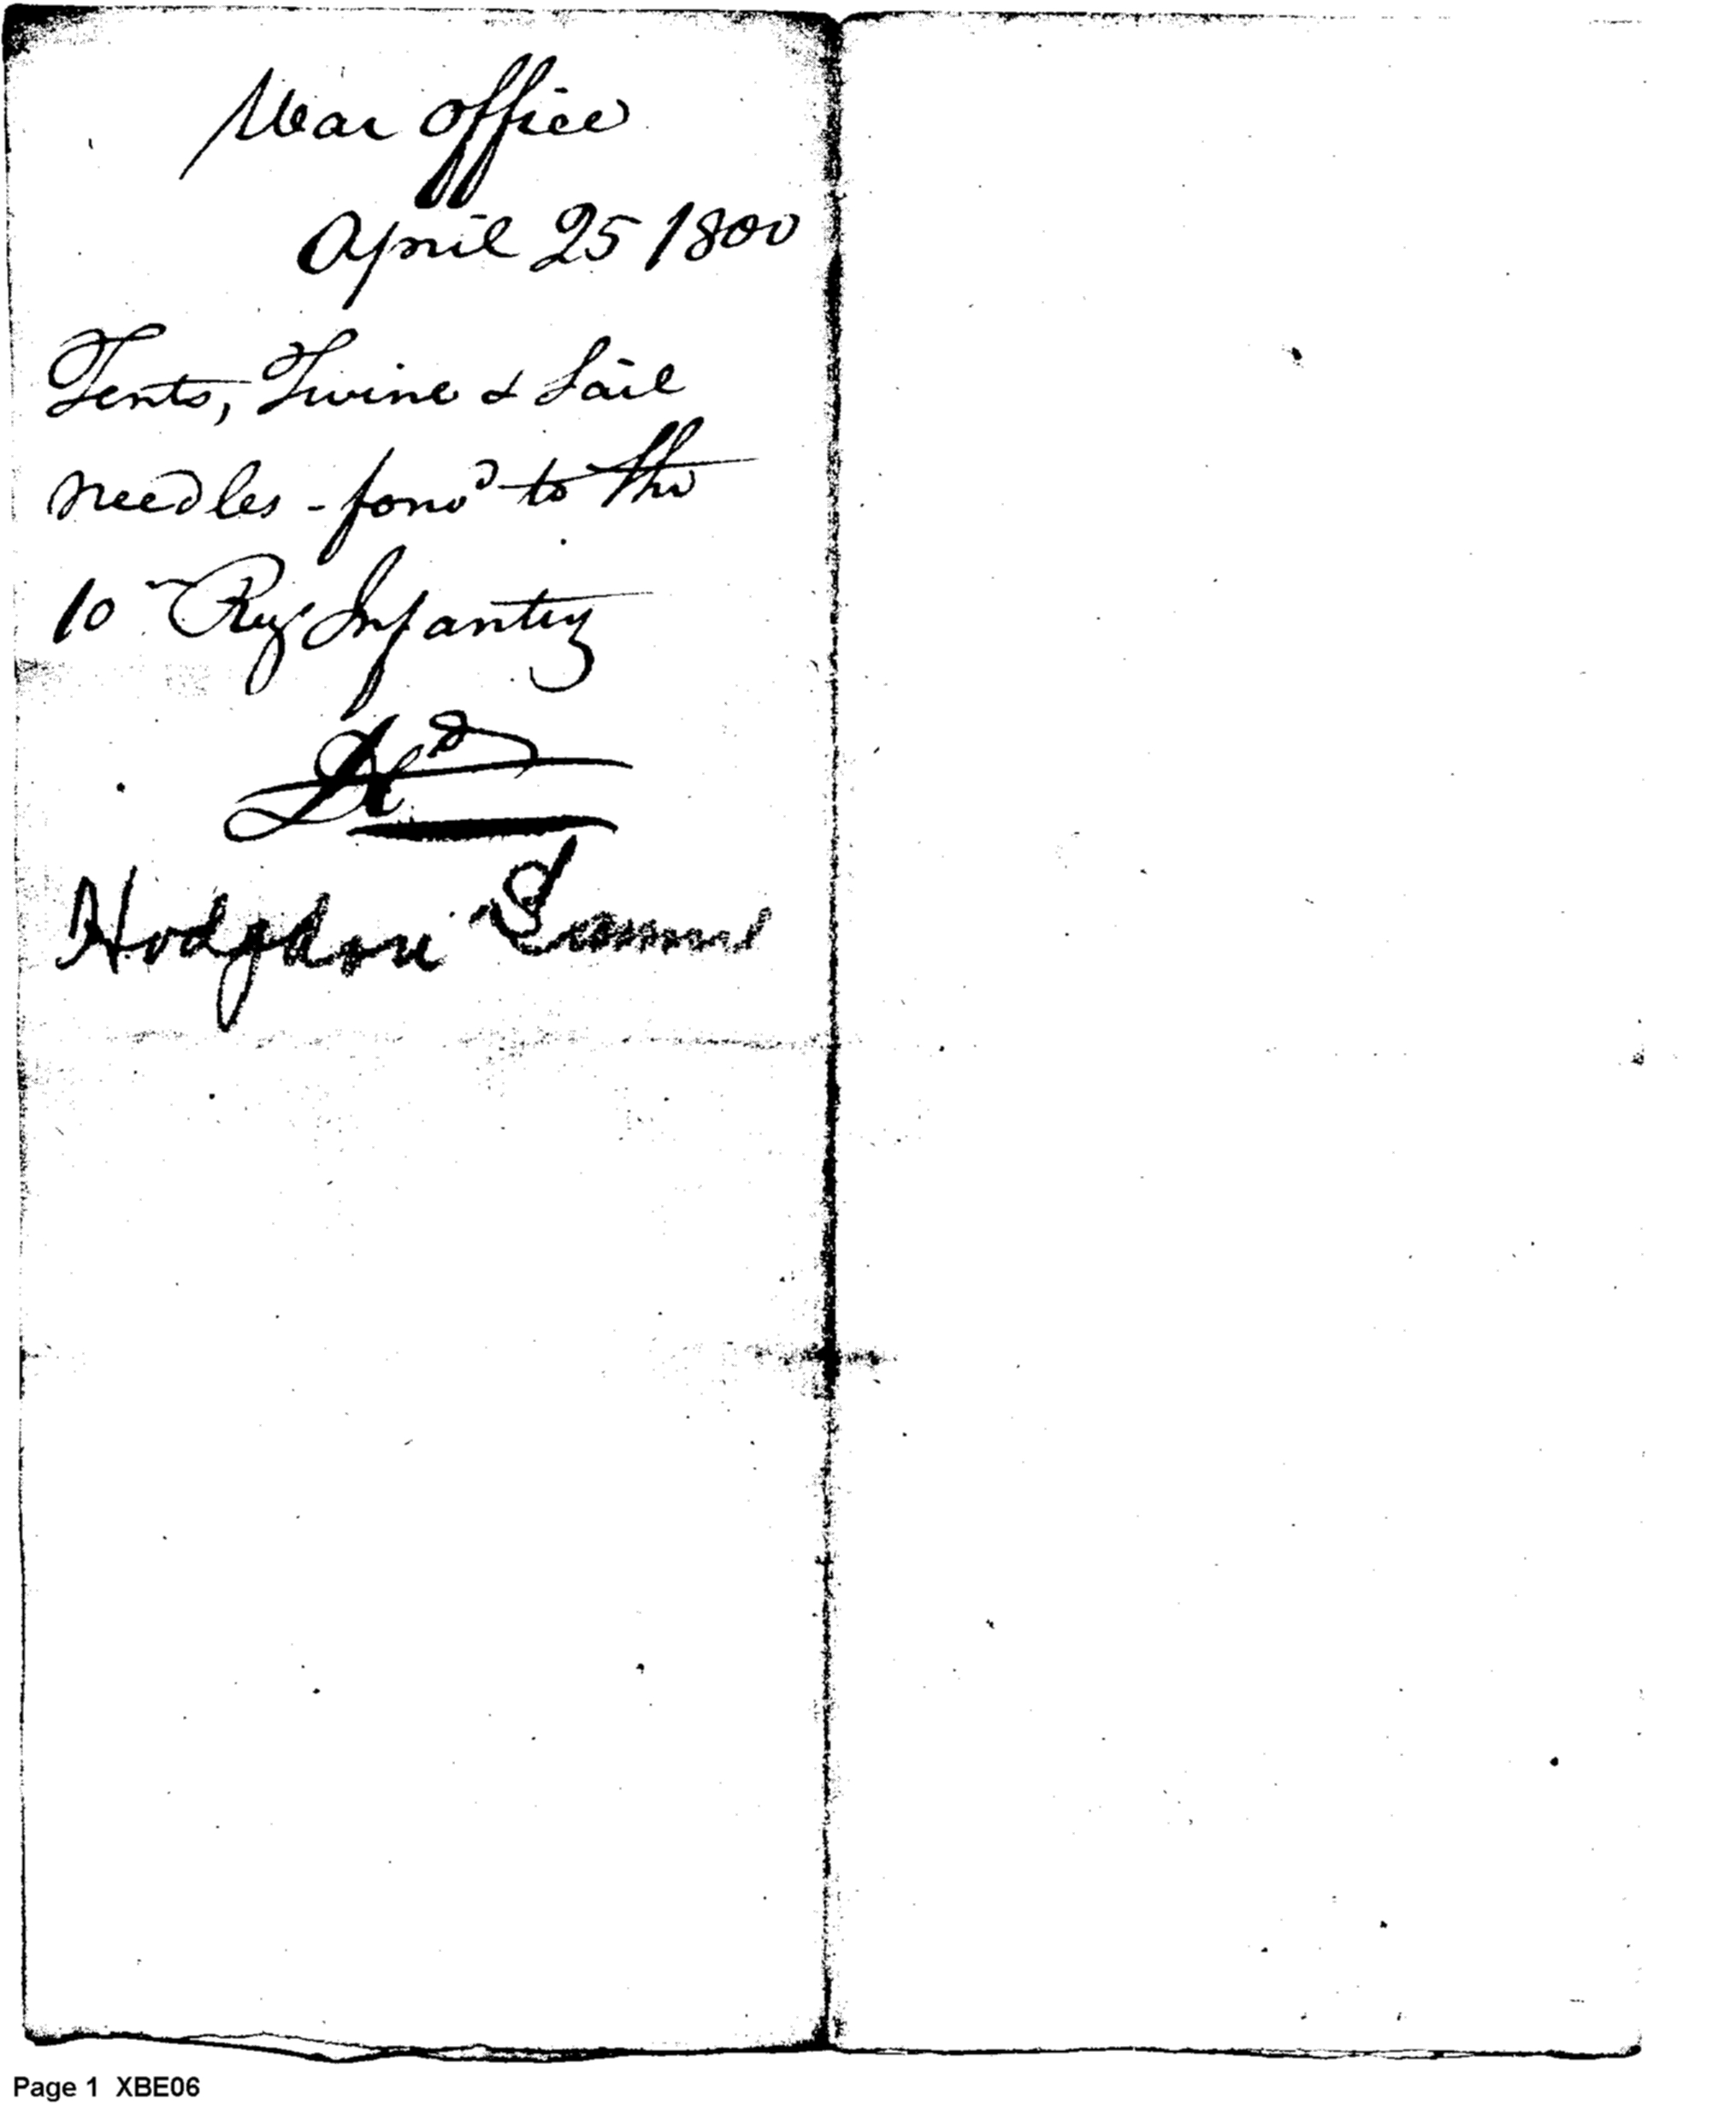 War Office
April 25 1800
Tents, Twine & Sail
needles - forwd to the
10 Reg Infantry
Hodgdon
Page 1 XBE06